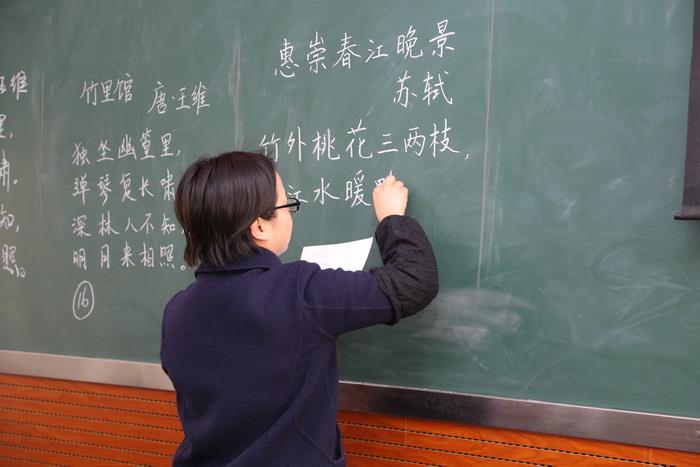 维
知,
照。
竹里馆 唐王维
独坐幽篁里,
弹琴复长啸
深林人不知
明月来相照。
16
惠崇春江晚景
苏轼
竹外桃花三两枝,
江水暖